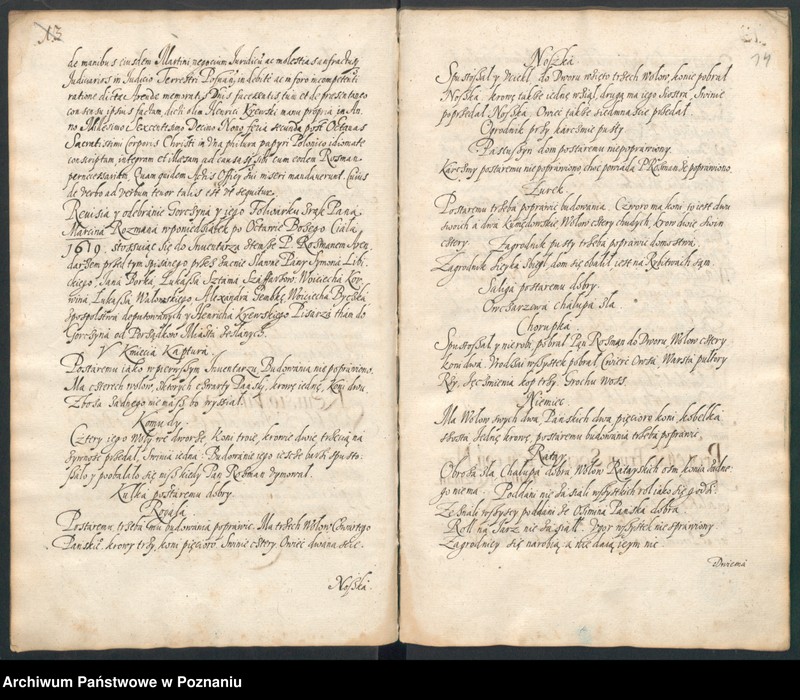 13
de manibus eiusdem Martini negocium Iuridicũ ac molestias anfractus
Iudiciarios in Iudicio Terrestri Posnan: indebitè ac in foro incompetenti
ratione dictae Arendae memorat: Dnis facessentis tum et de praesentaneo
consensu ipsius factam, dicti olim Henrici Kyewski manu propria in An,
no Millesimo Sexcentesimo Decimo Nono feria secunda post Octavas
Sacratissimi Corporis Christi in vna philura papyri Polonico idiomate
conscriptam integram et illaesam ad causas sibi cum eodem Rosman
pernecessariam. Quam quidem Actis Officij sui inseri mandaverunt. Cuius
de verbo ad verbum tenor talis est vt sequitur.
Rewisia y odebranie Gorczyna y iego Folwarku z rąk Pana
Marcina Rozmana w poniedziałek po Octawie Bożego Ciała
1619. stosuiąc się do Inwentarza temże P. Rosmanem Aren,
darzem przed tym spisanego przez Zacnie Sławne Pany Symona Libi,
ckiego, Jana Borka, Lukasza Sztama Szaffarzow, Woyciecha Kor,
wina, Lukasza Walowskiego, Alexandra Bembka, Woyciecha Byczka
z pospolstwa deputowanych y Henricha Kyewskiego Pisarza tham do
Gorczyna od Porządkow Miasta zesłanych.
Y Kmiecia Kaptura.
Postaremu iako w pierwszym Inwentarzu, Budowania nie poprawiono.
Ma czterech wołow, z ktorych czwarty Pański, krowę iednę, koni dwu.
Zboża żadnego nie masz bo przysiał.
Komudy.
Cztery iego woły we dworze, Koni troie, krowie dwie, trzecią na
żywność przedał, Swinia iedna. Budowanie iego iescze barzi spusto,
szało y poobalało się niż kiedy Pan Rosman dzymował.
Kulka postaremu dobry.
Rogala
Postaremu, trzeba mu budowania poprawić. Ma trzech Wołow Czwartego
Pańskie, krowy trzy, koni pięcioro, Swinie cztery, Owiec dwanascie.
Noszka
14
Noszka
Spustoszał y Uciekł, do Dworu wzięto trzech Wołow, konie pobrał
Noszka. krowę także iednę wziął, drugą ma iego Siostra, Swinie
poprzedał Noszka. Owiec także siedmnascie przedał.
Ogrodnik przy karczmie pusty
Pastuszyn dom postaremu niepoprawiony.
Karczmy postaremu nie poprawiono, choć powiada P. Rosman że poprawiono.
Zurek.
Postaremu trzeba poprawić budowania. Czworo ma koni, to iest dwu
swoich a dwu Kumędowskie, Wołow cztery chudych, krow dwie, swin
cztery. Zagrodnik pusty trzeba poprawić domostwa,
Zagrodnik Siczyka zbiegł, dom się obalił, iest na Kobitowach sam.
Sułga postaremu dobry.
Owczarzewa chałupa zła.
Chorupka.
Spustoszał y nie robi, pobrał Pan Rosman do Dworu, Wołow cztery,
koni dwa. Urodzai wszystek pobrał Cwierć Owsa, Warsta pułtory
Rży, Jęczmienia kop trzy, Grochu woss.
Niemiec.
Ma Wołow swych dwa, Pańskich dwa, pięcioro koni, kobełka
szosta, Jednę krowę, postaremu budowania trzeba poprawić.
Ratay
Obroża zła, Chałupa dobra, Wołow Rataiskich ośm, konia żadne,
go niema. Poddani nie zasiali wszystkich rol iako się godzi.
Ze znali wszyscy poddani że Oźimina Pańska dobra.
Roli na Jarz nie zasiali. Ugor wszystek nie sprawiony.
Zagrodnicy się narobią, a nic daią iesym nic.
Dwiema
Archiwum Państwowe w Poznaniu